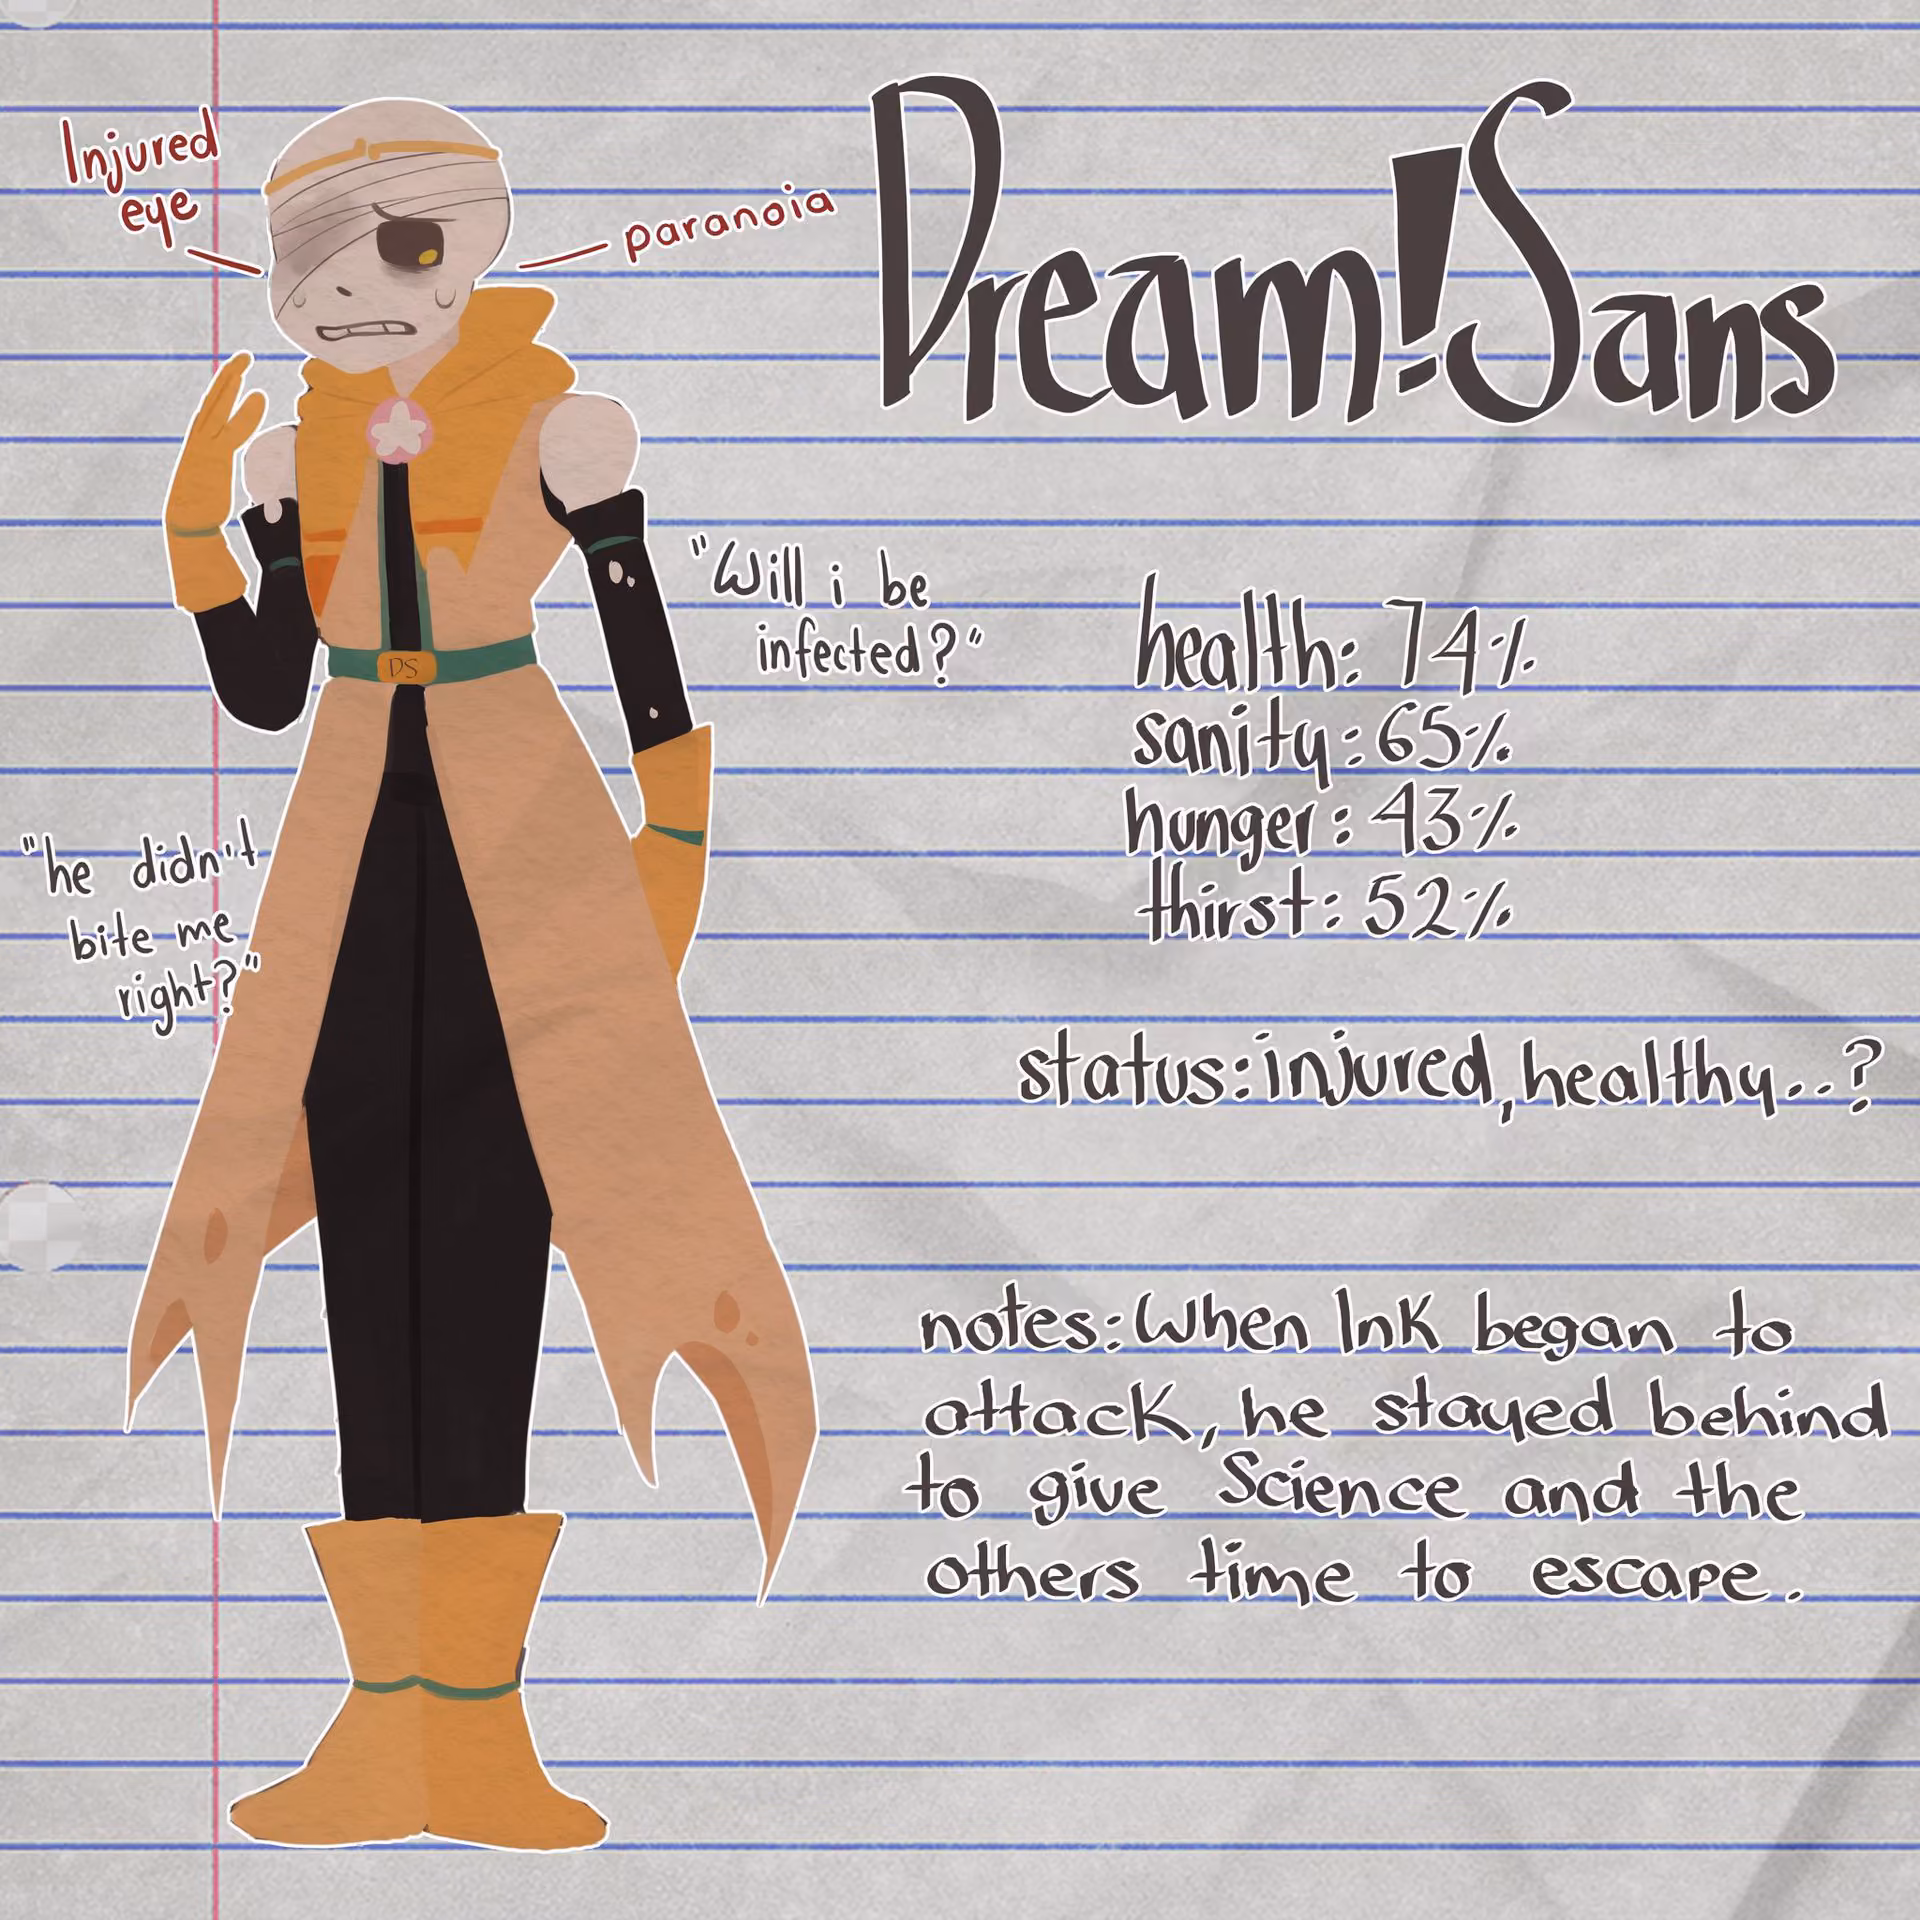 Dream!Sans
Injured
eye
paranoia
"Will i be
infected?"
DS
health: 74%
sanity: 65%
hunger: 43%
thirst: 52%
"he didn't
bite me
right?"
status: injured, healthy..?
notes: When Ink began to
attack, he stayed behind
to give Science and the
others time to escape.